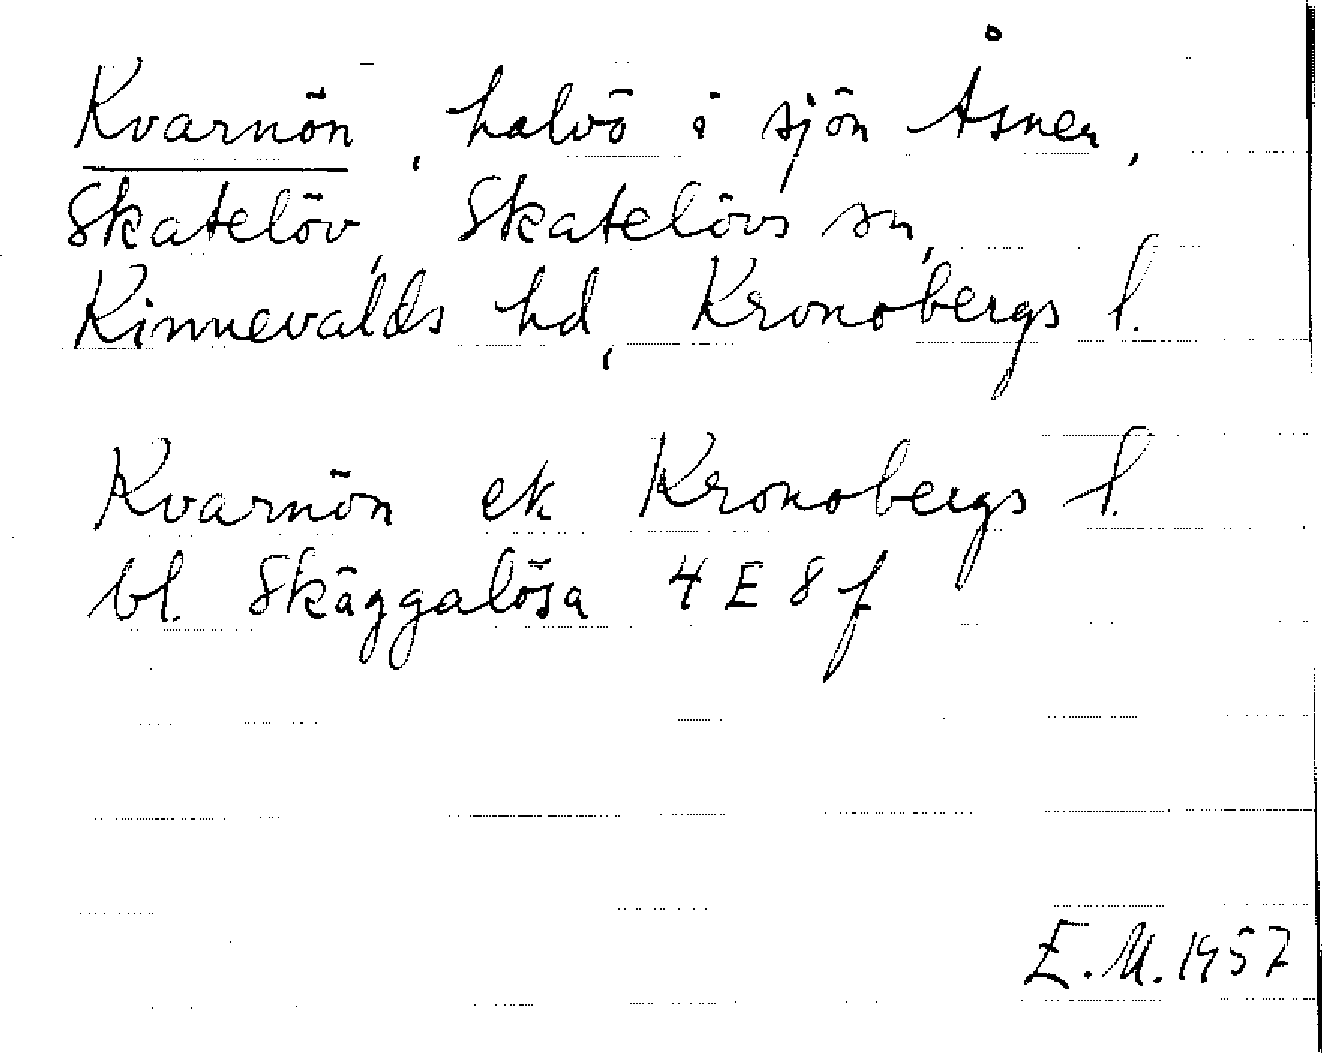 Kvarnön, halvö i sjön Åsnen,
Skatelöv, Skatelövs sn,
Kinnevalds hd, Kronobergs l.
Kvarnön ek Kronobergs l.
bl. Skäggalösa 4 E 8 f
E.M. 1957